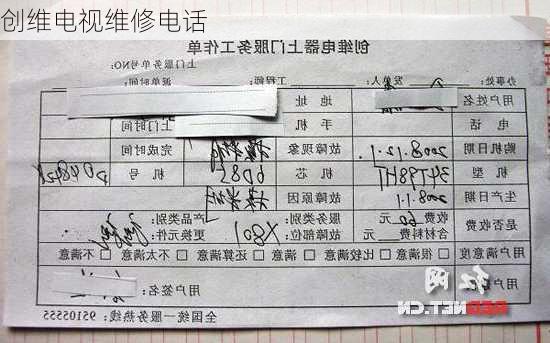 创维电视维修电话
创维电器上门服务工作单
上门服务单号NO:
办事处: 发单人: 工程师: 派单时间:
用户姓名 地址
电话 手机 上门时间
购机日期 2008.12.1 故障现象 完成时间
机型 34T98HT 机芯 6D8 机号
生产日期 2008.1.1 故障原因
是否收费 收费 60 元 服务类别: 产品类别:
含材料费 元 故障部位: X801 更换元件:
用户满意度 □很满意 □比较满意 □还算满意 □不太满意 □不满意
用户签名
全国统一服务热线: 95105555
红网
REDNET.CN